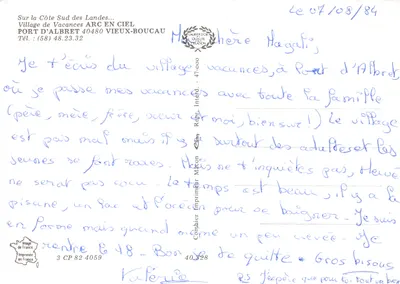 Sur la Côte Sud des Landes...
Village de Vacances ARC EN CIEL
PORT D'ALBRET 40480 VIEUX-BOUCAU
Tél. : (58) 48.23.32
Le 07/08/84
Ma chère Magali,
Je t'écris du village vacances, à Port d'Albret,
où je passe mes vacances avec toute la famille
(père, mère, frère, sœur et moi, bien sur !) Le village
est pas mal mais il y a surtout des adultes et les
jeunes se font rares. Mais ne t'inquiètes pas, Hervé
ne serait pas venu. Le temps est beau, il y a la
piscine, un lac et l'océan pour se baigner. Je suis
en forme mais quand même un peu crevée. Je
rentre le 18. Bon je te quitte. Gros bisous
Valérie
PS J'espère que pour toi tout va bien
Combier Imprimeur Mâcon
3 CP 82 4059
40.328